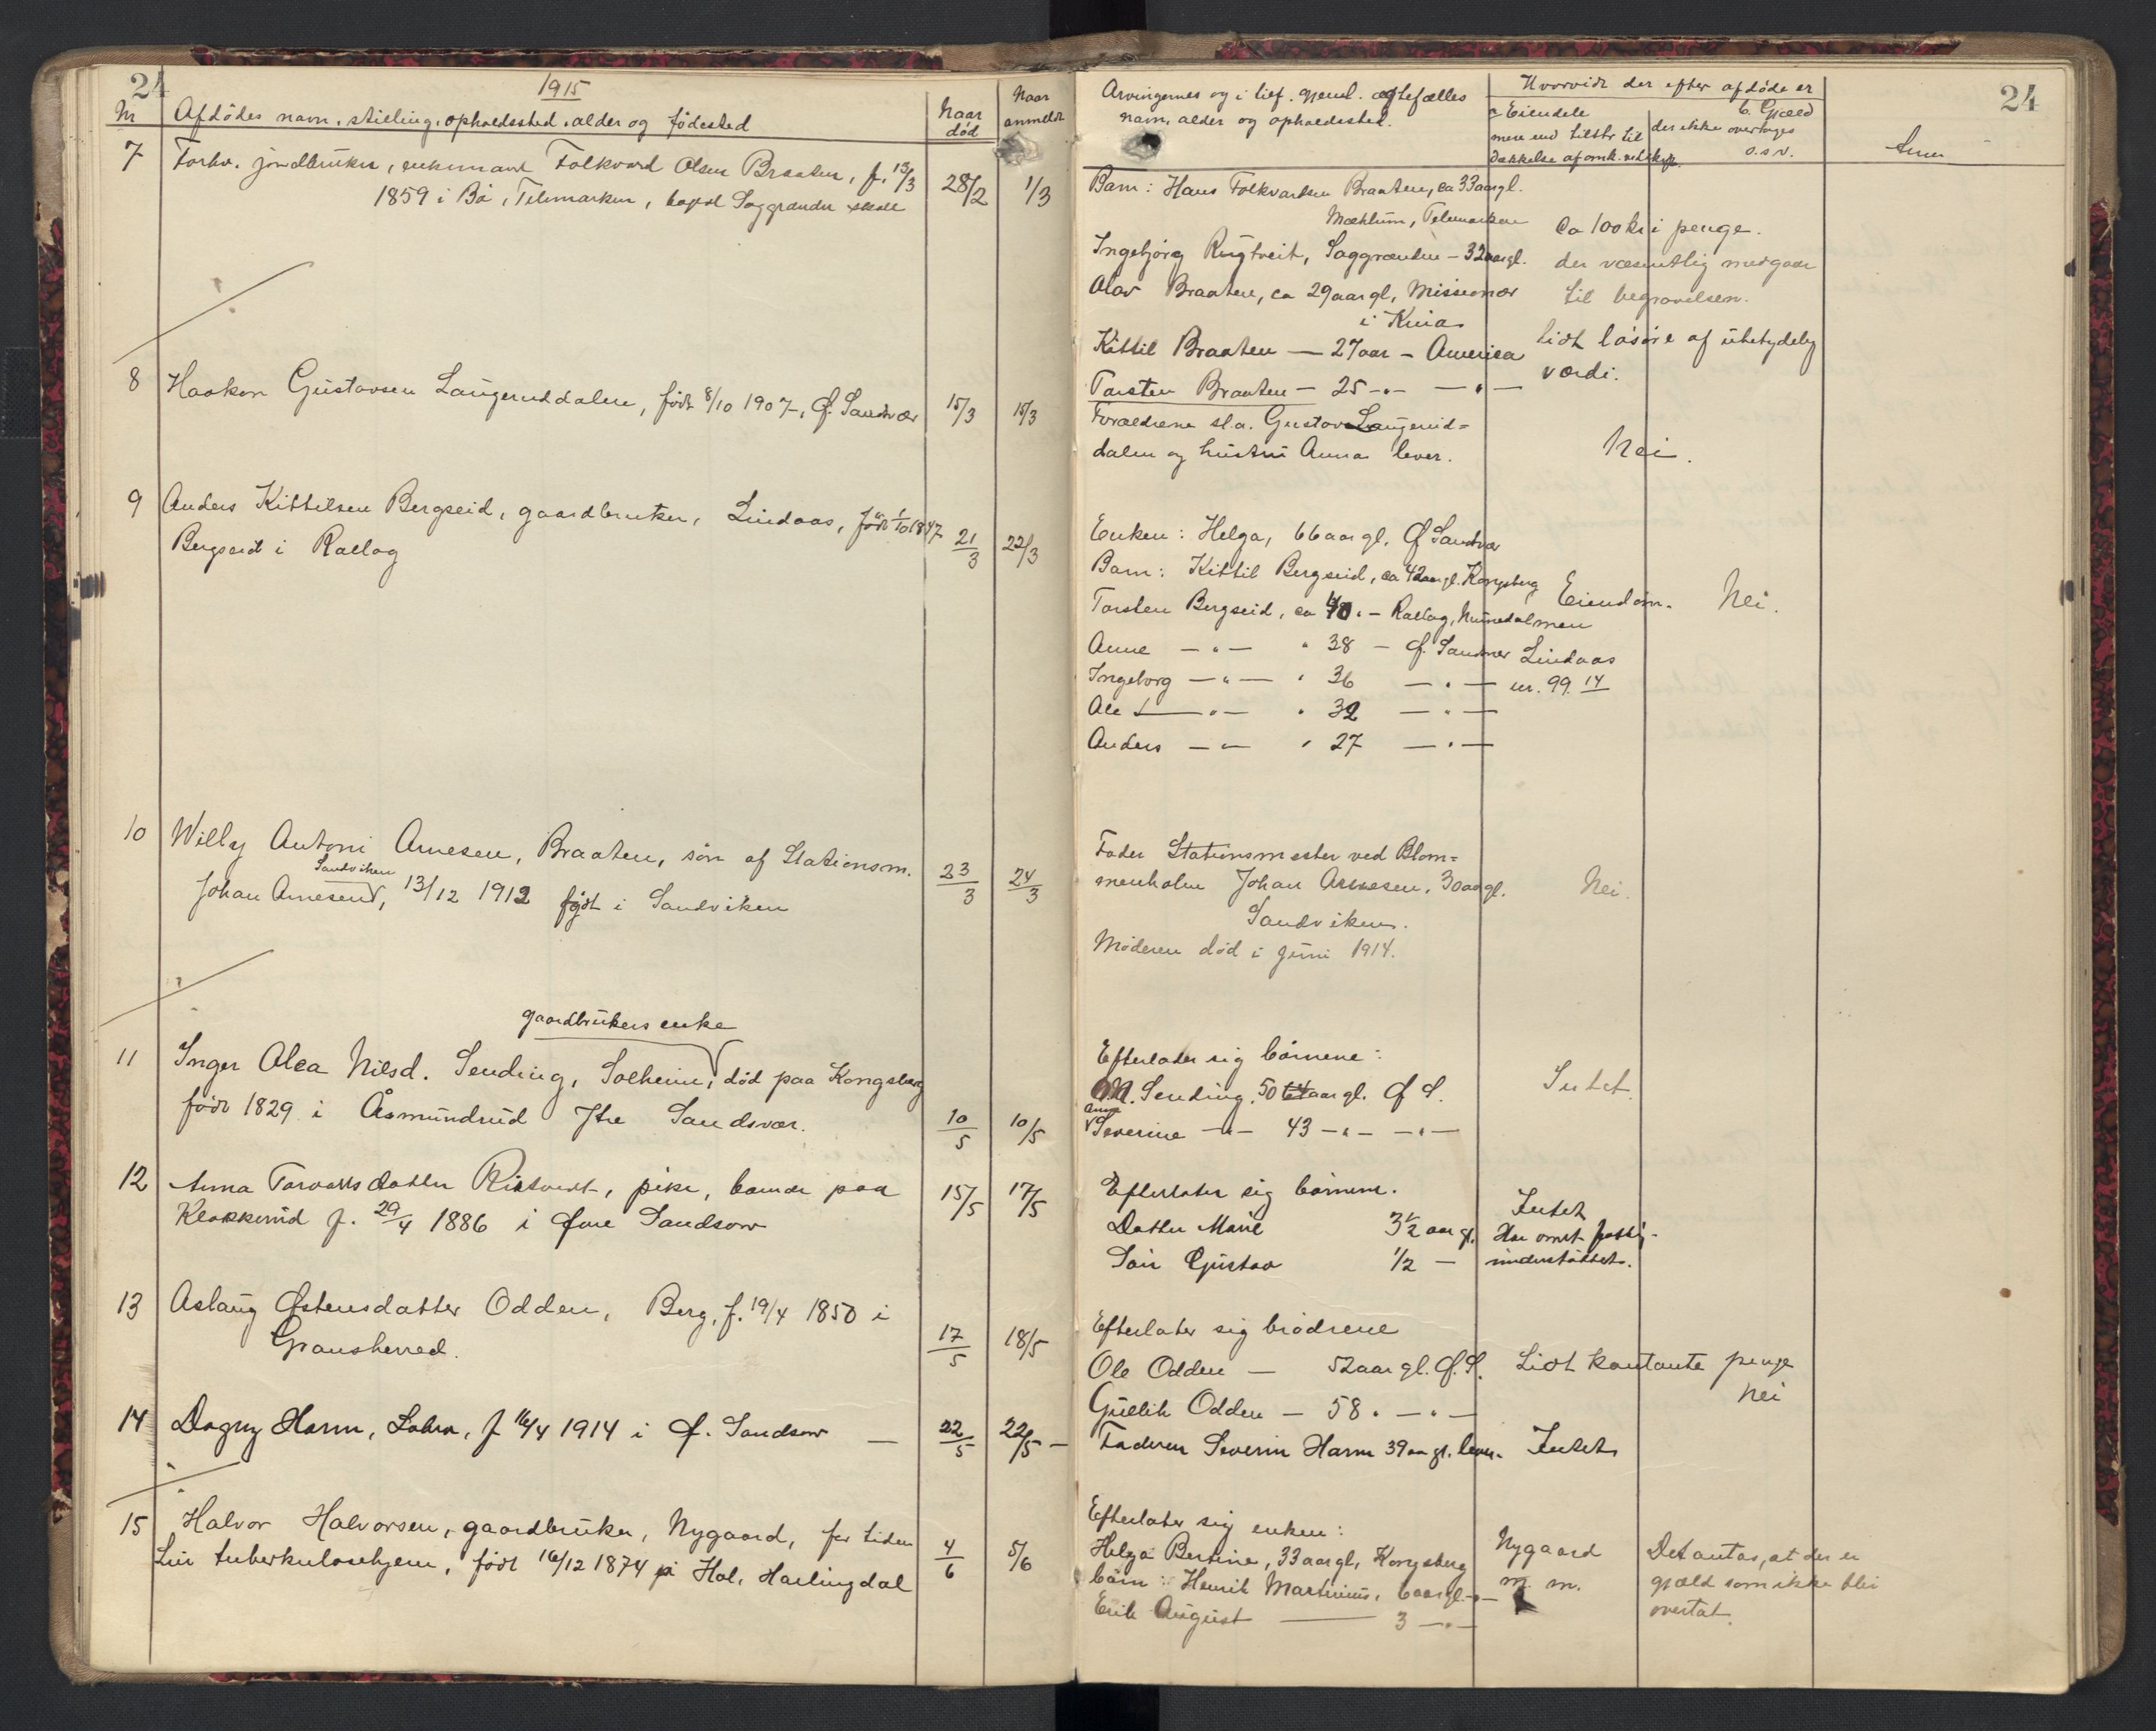 24
1915
Nr
Afdödes navn, stilling, opholdssted, alder og födested
Naar död
Naar anmeldt
7 Forhv. jordbruker, enkemand Folkvard Olsen Braaten, f. 13/3
1859 i Bö, Telemarken, Saggrenda
28/2
1/3
8 Haakon Gustavsen Laugeruddalen, födt 8/10 1907, Ø. Sandsvær
15/3
15/3
9 Anders Kittilsen Bergseid, gaardbruker, Lindaas, födt 1/10 1847
Bergseid i Rollag
21/3
22/3
10 Willy Antoni Arnesen, Braaten, sön af Stationsm.
Sandviken
Johan Arnesen, 13/12 1912 födt i Sandviken
23/3
24/3
gaardbrukers enke
11 Inger Olea Nilsd. Sending, Solheim, död paa Kongsberg
födt 1829 i Åsmundrud Ytre Sandsvær.
10/5
10/5
12 Anna Torvaldsdatter Ristvedt, pike, boende paa
Klokkerud f. 29/4 1886 i Øvre Sandsvær
15/5
17/5
13 Aslaug Østensdatter Odden, Berg, f. 19/4 1850 i
Gransherred.
17/5
18/5
14 Dagny Harm, Labro, f 16/4 1914 i Ø. Sandsvær —
22/5
22/5 —
15 Halvor Halvorsen, gaardbruker, Nygaard, for tiden
Lier tuberkulosehjem, födt 16/12 1874 på Hol, Hallingdal
4/6
5/6
24
Arvingernes og i tilf. gjenl. ægtefælles
navn, alder og opholdssted.
Hvorvidt der efter afdöde er
a Eiendele
mere end tilstr. til
dækkelse af omk. ved
b. Gjæld
der ikke overtages
o.s.v.
Anm
Barn: Hans Folkvardsen Braaten, ca 33 aar gl.
Mæhlum, Telemarken
Ingebjörg Rugtveit, Saggrenden – 32 aar gl.
Olav Braaten, ca 29 aar gl, Missionær
i Kina
Kittil Braaten — 27 aar – America
Torsten Braaten – 25 -„- — „ —
Ca 100 kr i penge.
der væsentlig medgaar
til begravelsen.
Lidt lösöre af ubetydelig
værdi.
Forældrene sl.a. Gustav Laugerud=
dalen og hustru Anna lever.
Nei.
Enken: Helga, 66 aar gl. Ø Sandsvær
Barn: Kittil Bergseid, ca 42 aar gl. Kongsberg
Torsten Bergseid, ca 40 „ – Rollag, Numedal
Anne — „ — „ 38 – Ø. Sandsvær
Ingeborg — „ — „ 36 — „ —
Ole — „ — „ 32 — „ —
Anders — „ — „ 27 — „ —
Eiendom.
Lindaas
nr. 99 14
Nei.
Fader Stationsmester ved Blom=
menholm Johan Arnesen, 30 aar gl.
Sandviken.
Moderen död i Juni 1914.
Nei.
Efterlader sig börnene:
Sending, 50 aar gl. Ø S.
Severine — „ — 43 — „ — — „ —
Intet.
Efterlater sig börnene.
Datter Marie 3 1/2 aar gl.
Sön Gustav 1/2 —
Intet
understöttet.
Efterlater sig brödrene
Ole Odden — 52 aar gl. Ø. S.
Gullik Odden – 58 „ — „ —
Lidt kontante penge
Nei
Faderen Severin Harm 39 aar gl. lever.
Intet
Efterlater sig enken:
Helga Bertine, 33 aar gl, Kongsberg
börn: Henrik Martinius, 6 aar gl. -„-
Erik August — 3 — „ —
Nygaard
m. m.
Det antas, at der er
gjæld som ikke blir
overtat.